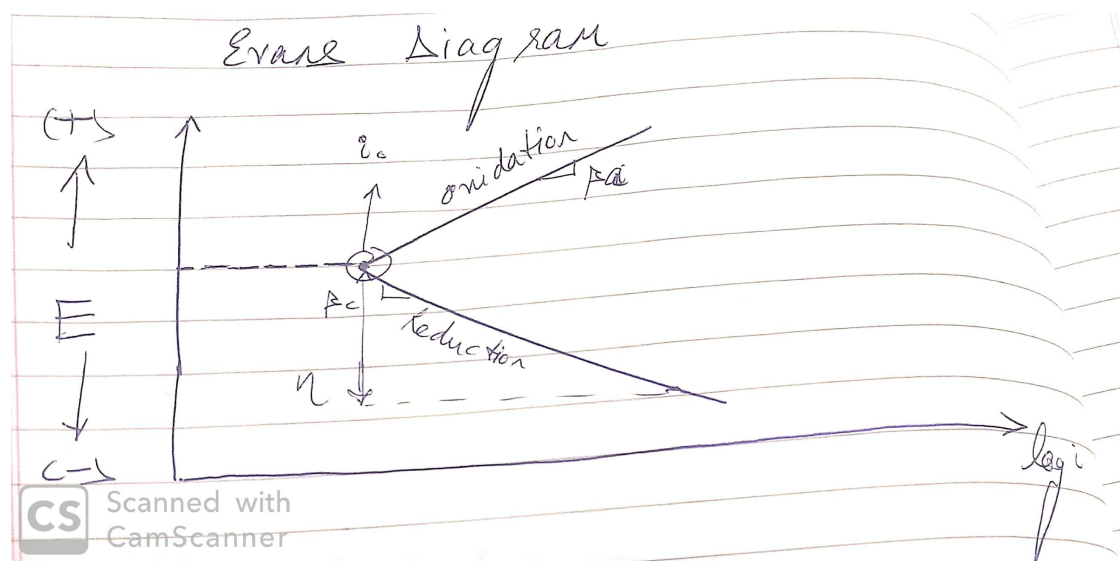 Evans Diagram
(+)
i₀
oxidation
βa
E
βc
reduction
η
(-)
log i
CS Scanned with
CamScanner